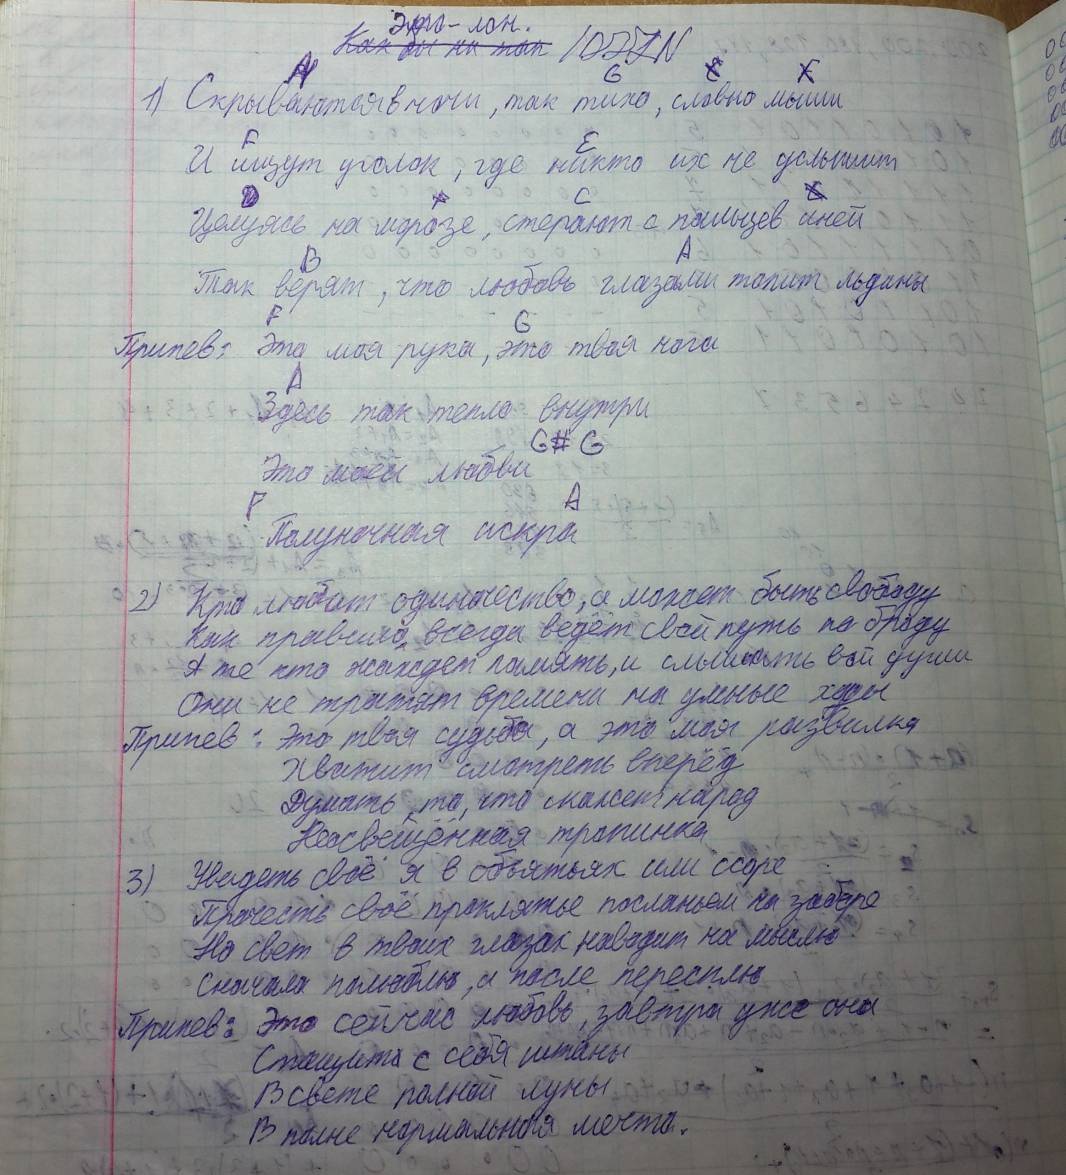 Эри-лон.
Как бы ни так
A G
1) Скрываются в ночи, так тихо, словно мыши
F E
И ищут уголок, где никто их не услышит
D C
Целуясь на морозе, стерают с пальцев иней
B A
Так верят, что любовь глазами топит льдины
F G
Припев: Это моя рука, это твоя нога
A
Здесь так тепло внутри
G# G
Это моей любви
F A
Полуночная искра
2) Кто любит одиночество, а может быть свободу
Как правило, всегда ведёт свой путь по броду
А те кто жаждет память, и слышить вой души
Они не тратят времени на умные ходы
Припев: Это твоя судьба, а это моя развилка
Хватит смотреть вперёд
Думать, то, что скажет народ
Неосвещённая тропинка
3) Увидеть своё я в объятьях или ссоре
Прочесть своё проклятье посланьем на заборе
Но свет в твоих глазах наводит на мыслю
Сначала полюблю, а после пересплю
Припев: Это сейчас любовь, завтра уже она
Стащила с себя штаны
В свете полной луны
В полне нормальная мечта.